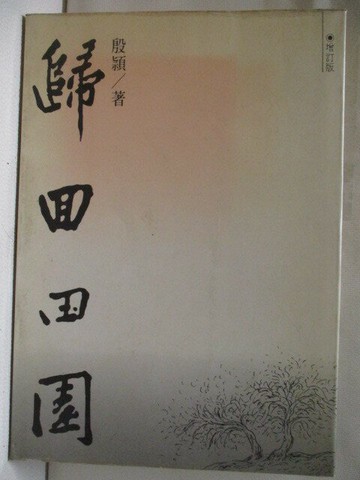 ●增訂版
殷穎／著
歸回田園